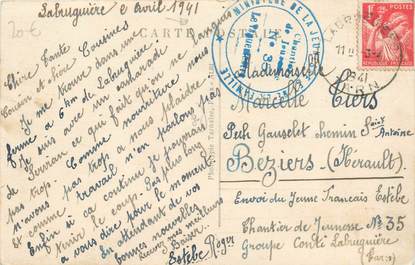 Labruguière 2 Avril 1941
20€
CARTE
Chère Tante
Cousin et chère Cousine
Je me trouve dans une
ferme a 6 km de Labruguière
Je suis avec un camarade
de ce qui fait qu'on ne langui
pas trop. Comme nourriture
n'avons pas trop a nous plaindre
et comme travail n'en parlons pas
Enfin si ça continue je pourrais
tenir le coup. Pas plus long
a vous dire pour le moment
En attendant de vos
bonnes nouvelles
recevez mes meilleurs
Baisers.
Estèbe Roger
MINISTÈRE DE LA JEUNESSE
Chantier de
Jeunesse
No 35
LABRUGUIÈRE
FAMILLE
LABRUGUIÈRE
11
41
TARN
POSTES
Mademoiselle
Marcelle Ciers
Pech Gauselet Chemin St Antoine
Béziers (Hérault)
Envoi du Jeune Français Estèbe
Chantier de Jeunesse No 35
Groupe Conté Labruguière
(Tarn)